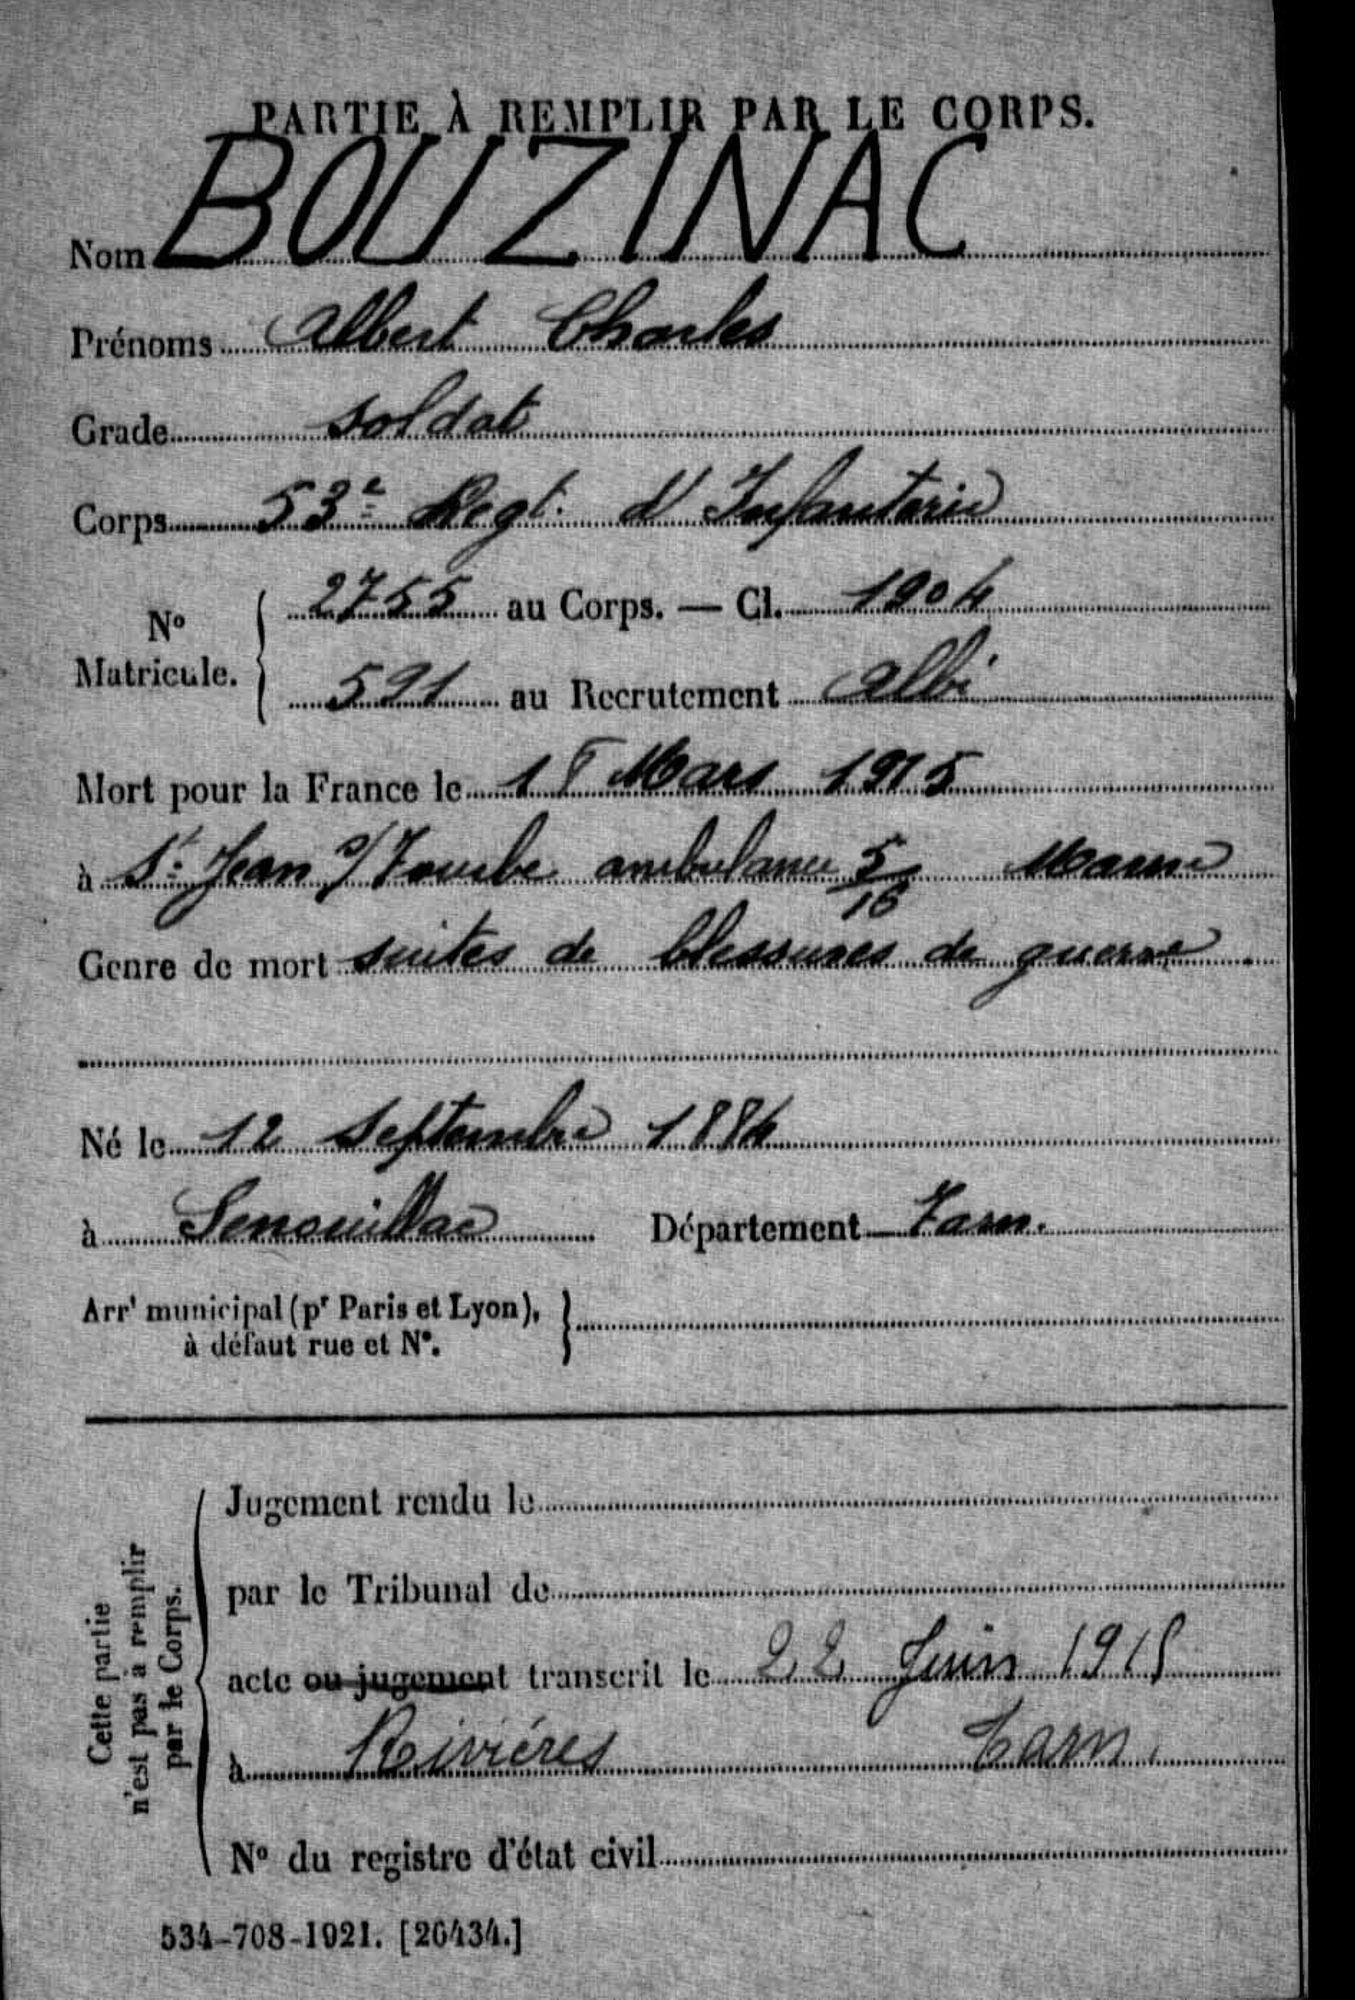 PARTIE À REMPLIR PAR LE CORPS.
Nom BOUZINAC
Prénoms Albert Charles
Grade soldat
Corps 53e Regt. d'Infanterie
No Matricule. 2755 au Corps. — Cl. 1904
591 au Recrutement Albi
Mort pour la France le 18 Mars 1915
à St Jean s/Tourbe ambulance 5/16 Marne
Genre de mort suites de blessures de guerre.
Né le 12 Septembre 1884
à Senouillac Département Tarn.
Arrt municipal (pr Paris et Lyon),
à défaut rue et N°.
Cette partie
n'est pas à remplir
par le Corps.
Jugement rendu le
par le Tribunal de
acte ou jugement transcrit le 22 Juin 1915
à Rivières Tarn.
No du registre d'état civil
534-708-1921. [26434.]